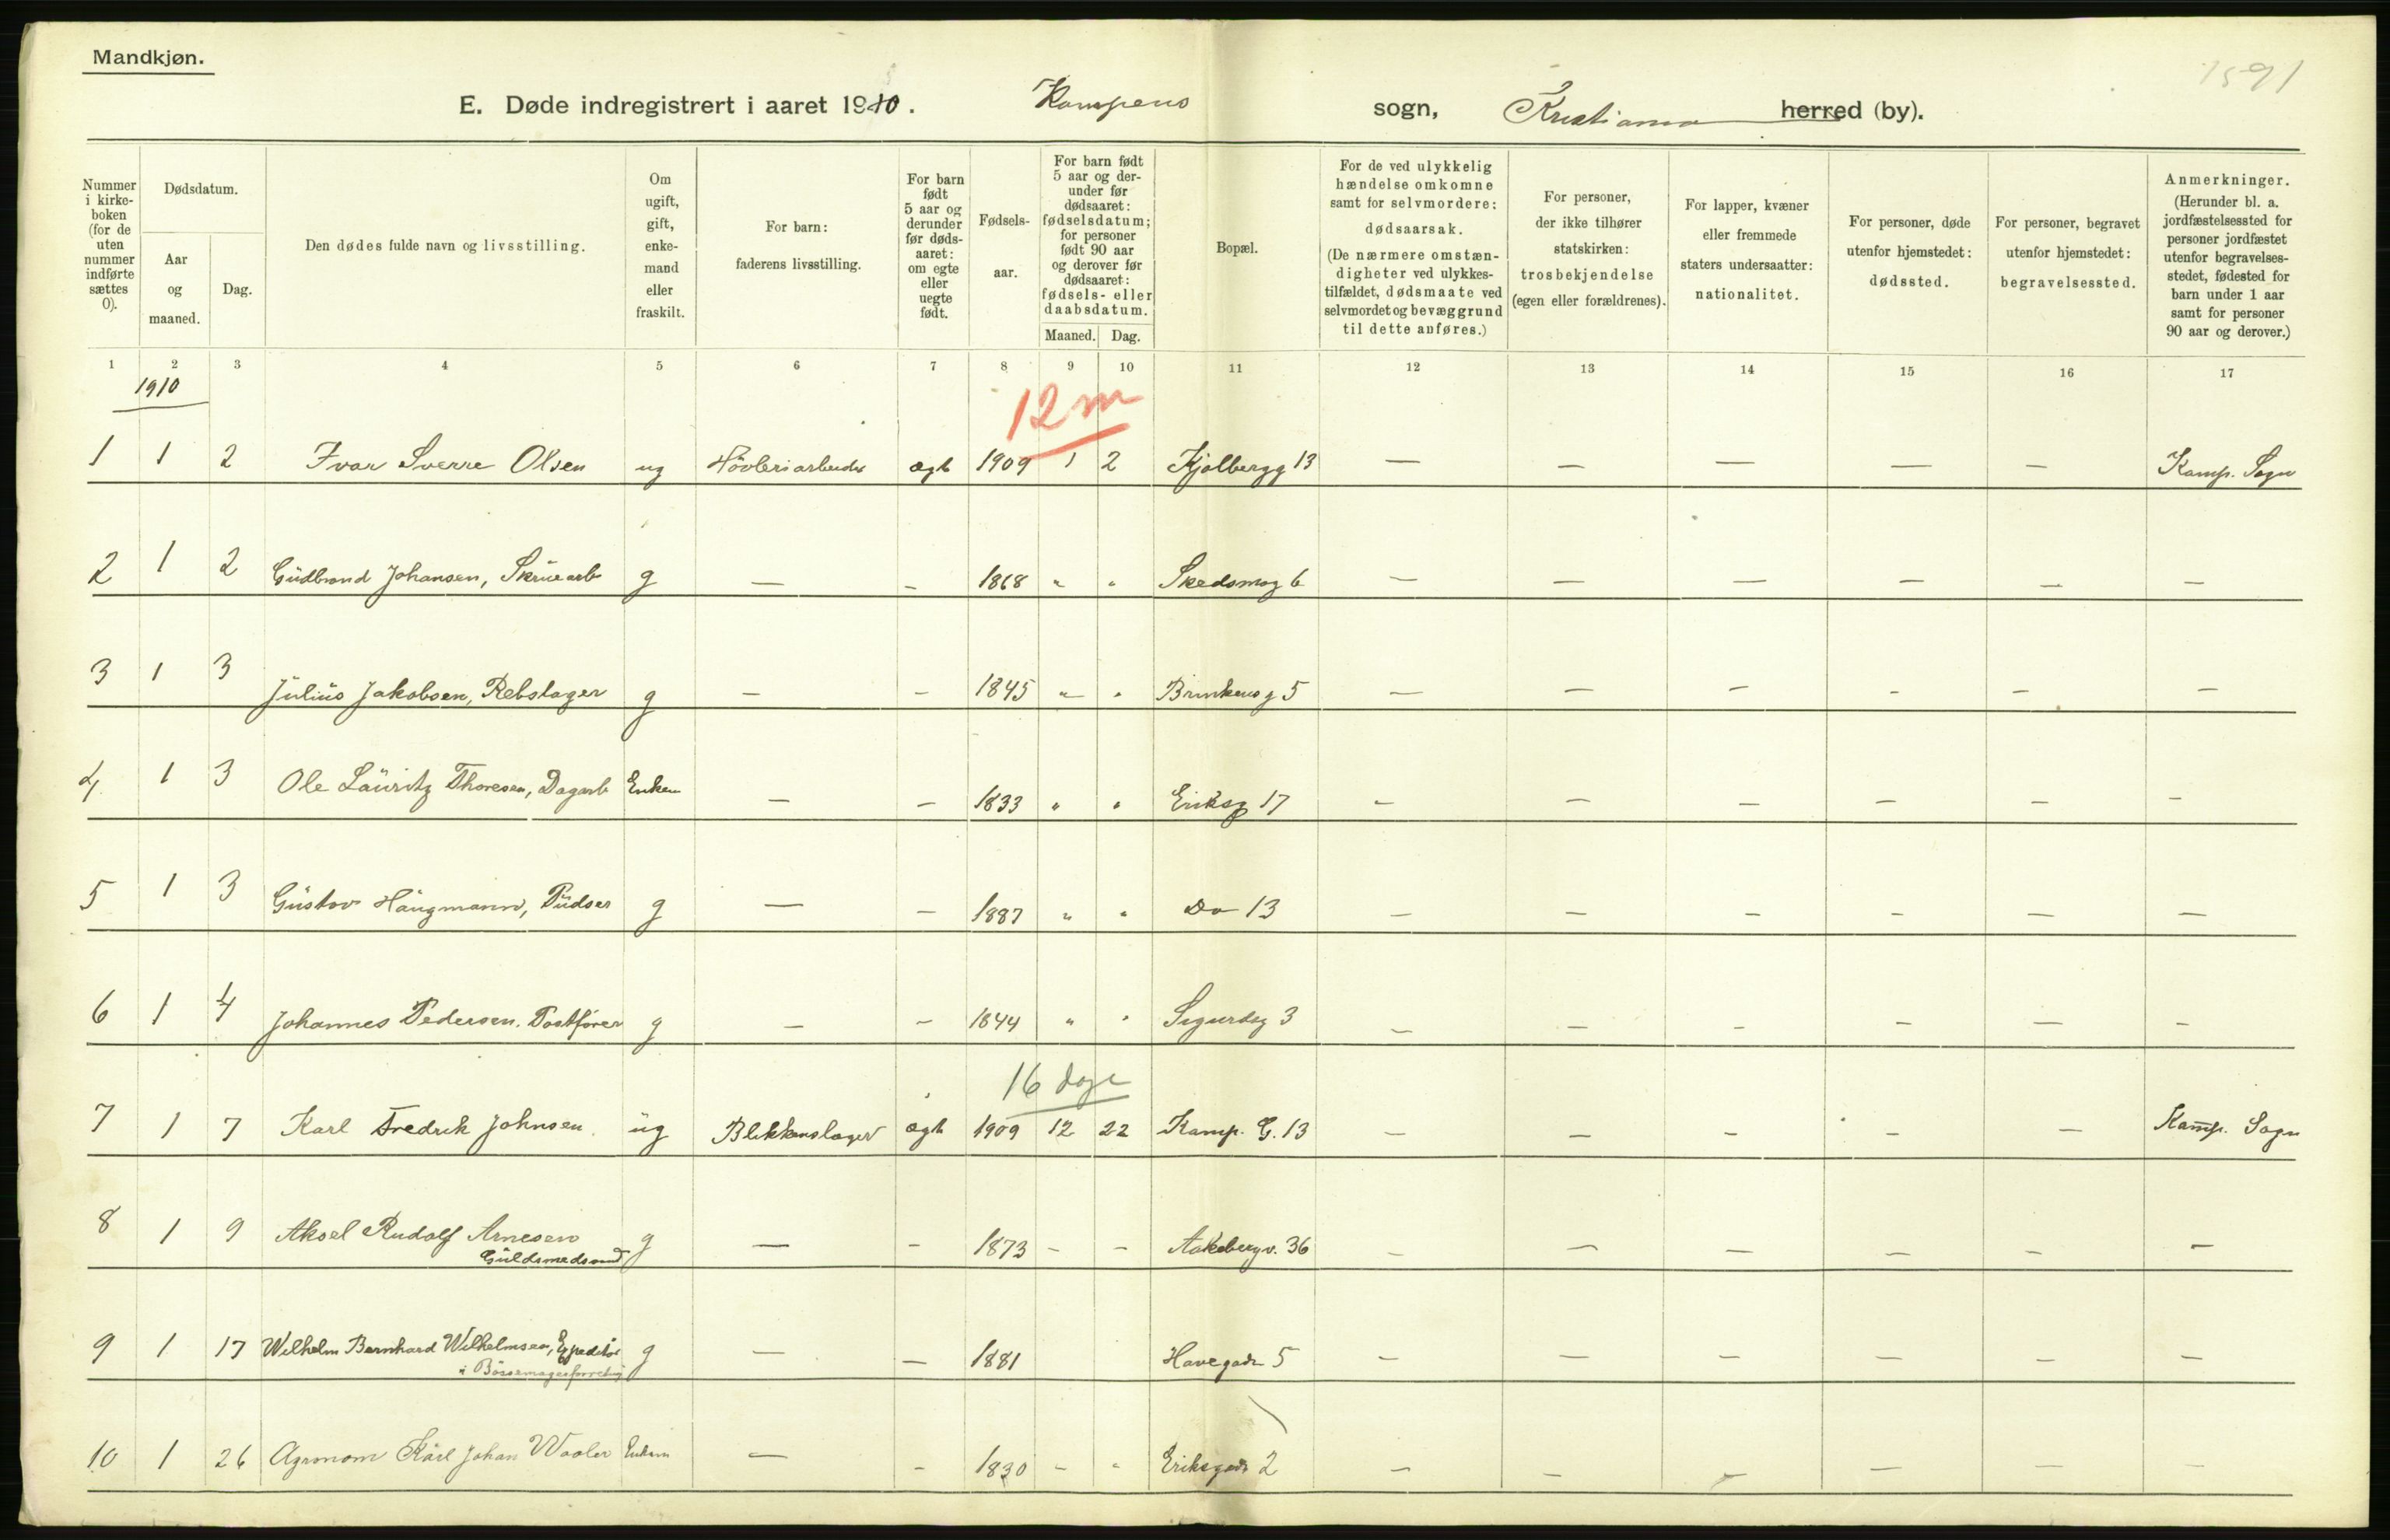 Mandkjøn.
1591
E. Døde indregistrert i aaret 1910. Kampens sogn, Kristiania herred (by).
Nummer i kirke-boken (for de uten nummer indførte sættes 0).
Dødsdatum.
Aar og maaned.
Dag.
Den dødes fulde navn og livsstilling.
Om ugift, gift, enke-mand eller fraskilt.
For barn: faderens livsstilling.
For barn født 5 aar og derunder før døds-aaret: om egte eller uegte født.
Fødsels-aar.
For barn født 5 aar og der-under før dødsaaret: fødselsdatum; for personer født 90 aar og derover før dødsaaret: fødsels- eller daabsdatum.
Maaned. Dag.
Bopæl.
For de ved ulykkelig hændelse omkomne samt for selvmordere: dødsaarsak. (De nærmere omstæn-digheter ved ulykkes-tilfældet, dødsmaate ved selvmordet og bevæggrund til dette anføres.)
For personer, der ikke tilhører statskirken: trosbekjendelse (egen eller forældrenes).
For lapper, kvæner eller fremmede staters undersaatter: nationalitet.
For personer, døde utenfor hjemstedet: dødssted.
For personer, begravet utenfor hjemstedet: begravelsessted.
Anmerkninger. (Herunder bl. a. jordfæstelsessted for personer jordfæstet utenfor begravelses-stedet, fødested for barn under 1 aar samt for personer 90 aar og derover.)
1 2 3 4 5 6 7 8 9 10 11 12 13 14 15 16 17
1910
12 m
1 1 2 Ivar Sverre Olsen ug Høvleriarbeider ægt 1909 1 2 Kjølbergg 13 — — — — — Kamp. Sogn
2 1 2 Gudbrand Johansen, Skruearb g — — 1868 " " Skedsmog 6 — — — — — —
3 1 3 Julius Jakobsen, Rebslager g — — 1845 " " Brinkensg 5 — — — — — —
4 1 3 Ole Lauritz Thoresen, Dagarb Enkem — — 1833 " " Eriksg 17 — — — — — —
5 1 3 Gustav Haugmann, Pudser g — — 1887 " " Do 13 — — — — — —
6 1 4 Johannes Pedersen. Postfører g — — 1844 " " Sigurdsg 3 — — — — — —
16 dage
7 1 7 Karl Fredrik Johnsen. ug Blikkenslager ægt 1909 12 22 Kamp. G. 13 — — — — — Kamp. Sogn
8 1 9 Aksel Rudolf Arnesen g — — 1873 - - Aakebergv. 36 — — — — — —
Guldsmedsvend
9 1 17 Wilhelm Bernhard Wilhelmsen, Expeditør g — — 1881 Havegade 5 — — — — — —
i Bøssemagerforretng
10 1 26 Agronom Karl Johan Waaler Enkem — — 1830 - - Eriksgade 2 — — — — — —